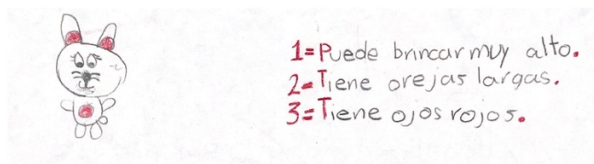 1=Puede brincar muy alto.
2=Tiene orejas largas.
3=Tiene ojos rojos.